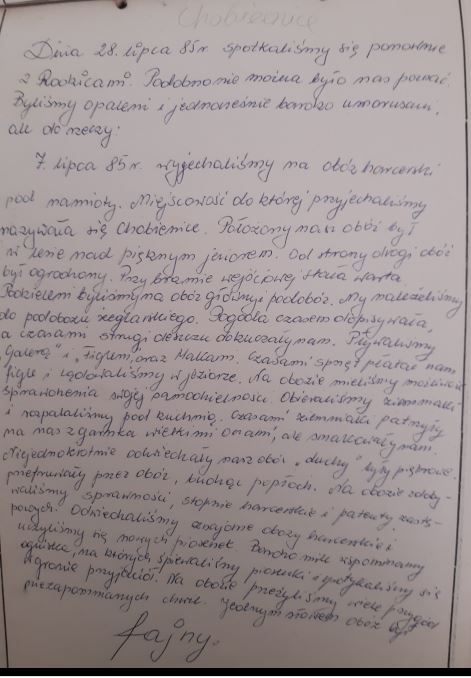 Chobienice
Dnia 28 lipca 85r spotkaliśmy się ponownie
z Rodzicami. Podobno nie można było nas poznać.
Byliśmy opaleni i jednocześnie bardzo umorusani,
ale do rzeczy:
7 lipca 85r. wyjechaliśmy na obóz harcerski
pod namioty. Miejscowość do której przyjechaliśmy
nazywała się Chobienice. Położony nasz obóz był
w lesie nad pięknym jeziorem. Od strony drogi obóz
był ogrodzony. Przy bramie wejściowej stała warta
Podzieleni byliśmy na obóz główny i podobóz. My należeliśmy
do podobozu żeglarskiego. Pogoda czasem dopisywała,
a czasami strugi deszczu dokuczały nam. Pływaliśmy
"Galerą" i "Figlem", oraz Malkam. Czasami sprzęt płatał nam
figle i lądowaliśmy w jeziorze. Na obozie mieliśmy możliwość
sprawdzenia swojej samodzielności. Obieraliśmy ziemniaki
i napalaliśmy pod kuchnią. Czasami ziemniaki patrzyły
na nas z garnka wielkimi oczami, ale smakowały nam
Niejednokrotnie odwiedzały nasz obóz "duchy"
przez obóz, budząc popłoch. Na obozie zdoby-
waliśmy sprawności, stopnie harcerskie i patenty
Odwiedzaliśmy obozy harcerskie i
uczyliśmy się nowych piosenek. Bardzo mile wspominamy
ogniska, na których śpiewaliśmy piosenki i spotykaliśmy się
w gronie przyjaciół. Na obozie przeżyliśmy wiele przygód
niezapomnianych chwil. Jednym słowem obóz był
fajny.